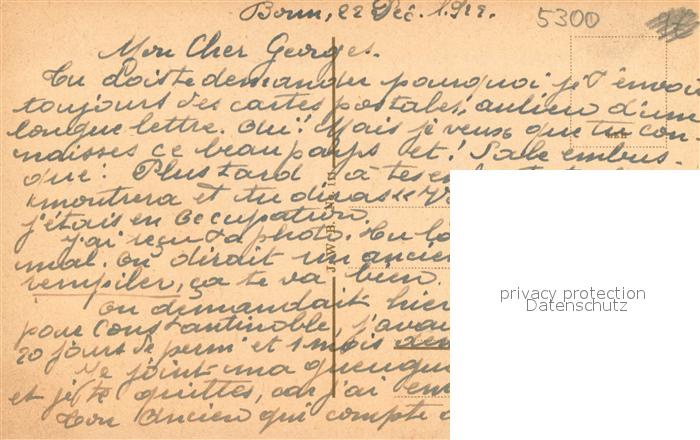 Bonn, 22 Déc. 1922.
5300
Mon Cher Georges.
Tu dois te demander pourquoi je t'envoie
toujours des cartes postales, au lieu d'une
longue lettre. Oui! Mais je veux que tu con-
naisses ce beau pays et! Sale embus-
qué! Plus tard à tes
montrera et tu diras «
j'étais en occupation.
J'ai reçu ta photo. Tu
mal. On dirait un ancien
rempiler, ça te va bien.
On demandait hier
pour Constantinoble, j'avai
20 jours de permi et 1 mois
Je joint ma
et je te quittes, car j'ai
Ton ancien qui compte
privacy protection
Datenschutz